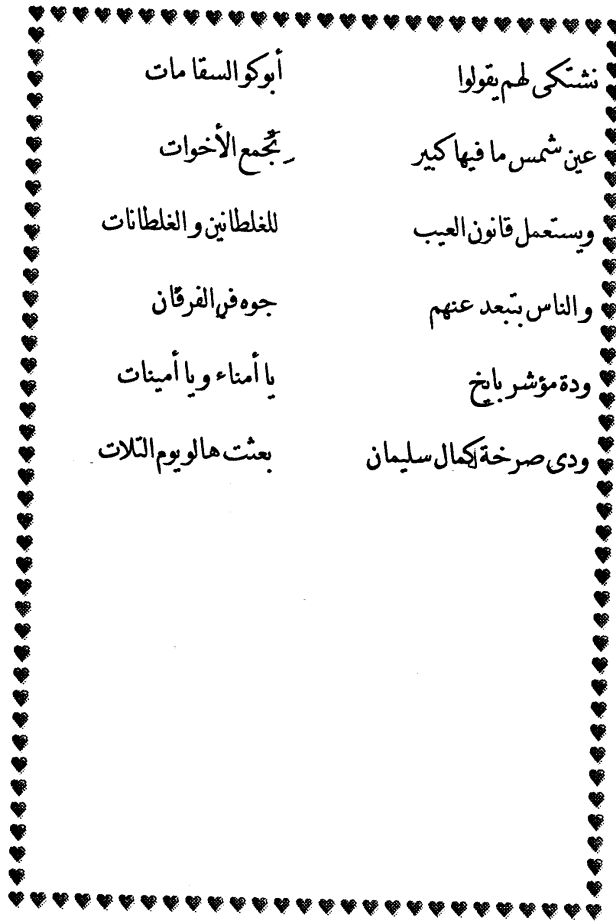 نشتكى لهم يقولوا أبوكو السقا مات
عين شمس ما فيها كبير يجمع الأخوات
ويستعمل قانون العيب للغلطانين والغلطانات
والناس بتبعد عنهم جوه فى الفرقان
ودة مؤشر بايخ يا أمناء ويا أمينات
ودى صرخة كمال سليمان بعثت هالو يوم التلات